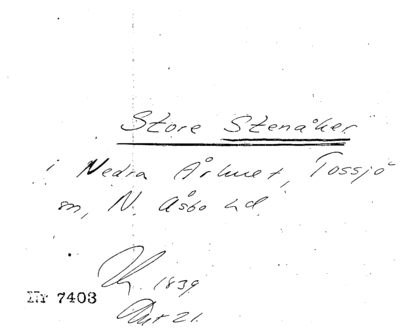 Store Stenåker
i Nedra Århuet, Tossjö
sn, N. Åsbo hd.
1839
Nr 7403
Akt 21.